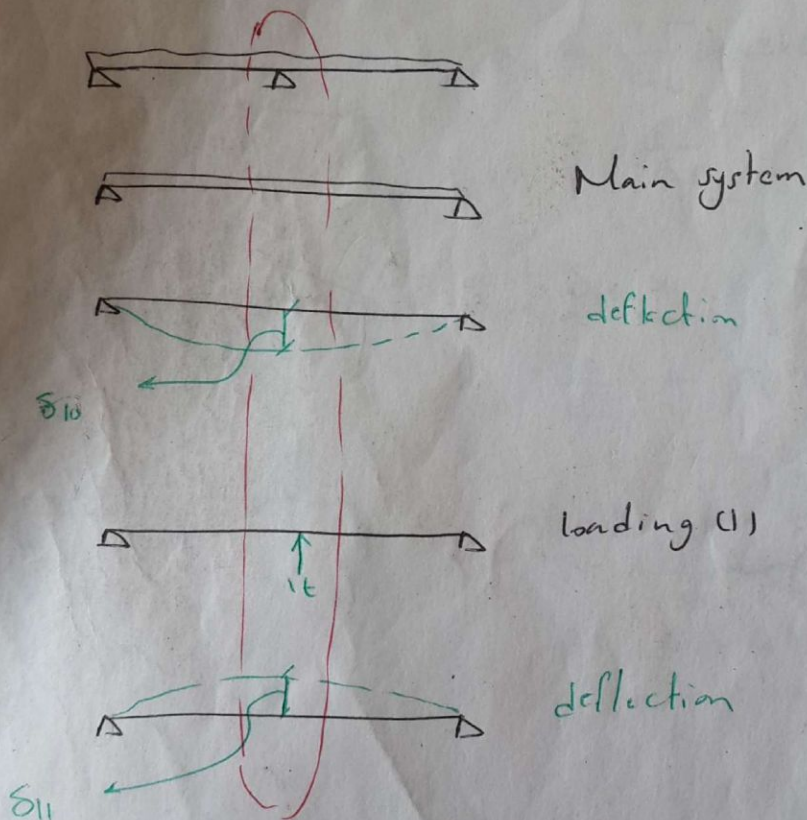 Main system
deflection
δ10
loading (1)
1t
deflection
δ11